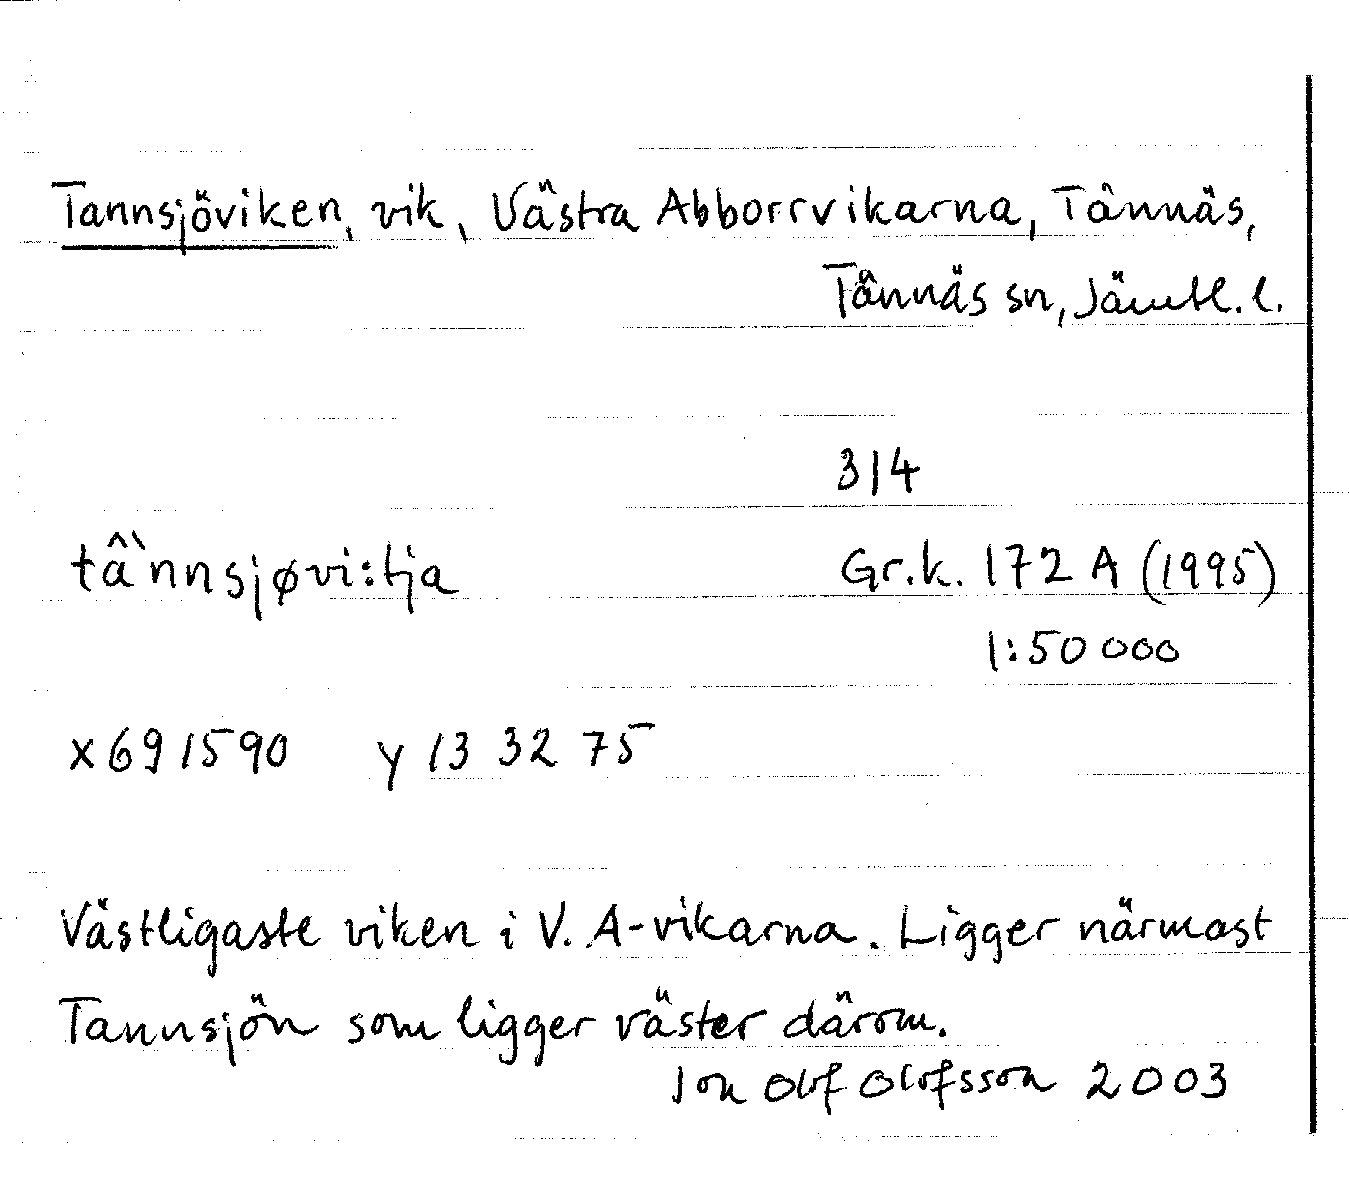 Tannsjöviken, vik, Västra Abborrvikarna, Tännäs,
Tännäs sn, Jämtl. l.
314
tâ`nnsjøvi:tja
Gr.k. 172 A (1995)
1:50 000
x691590 y 13 32 75
Västligaste viken i V. A-vikarna. Ligger närmast
Tannsjön som ligger väster därom.
Jon Olof Olofsson 2003